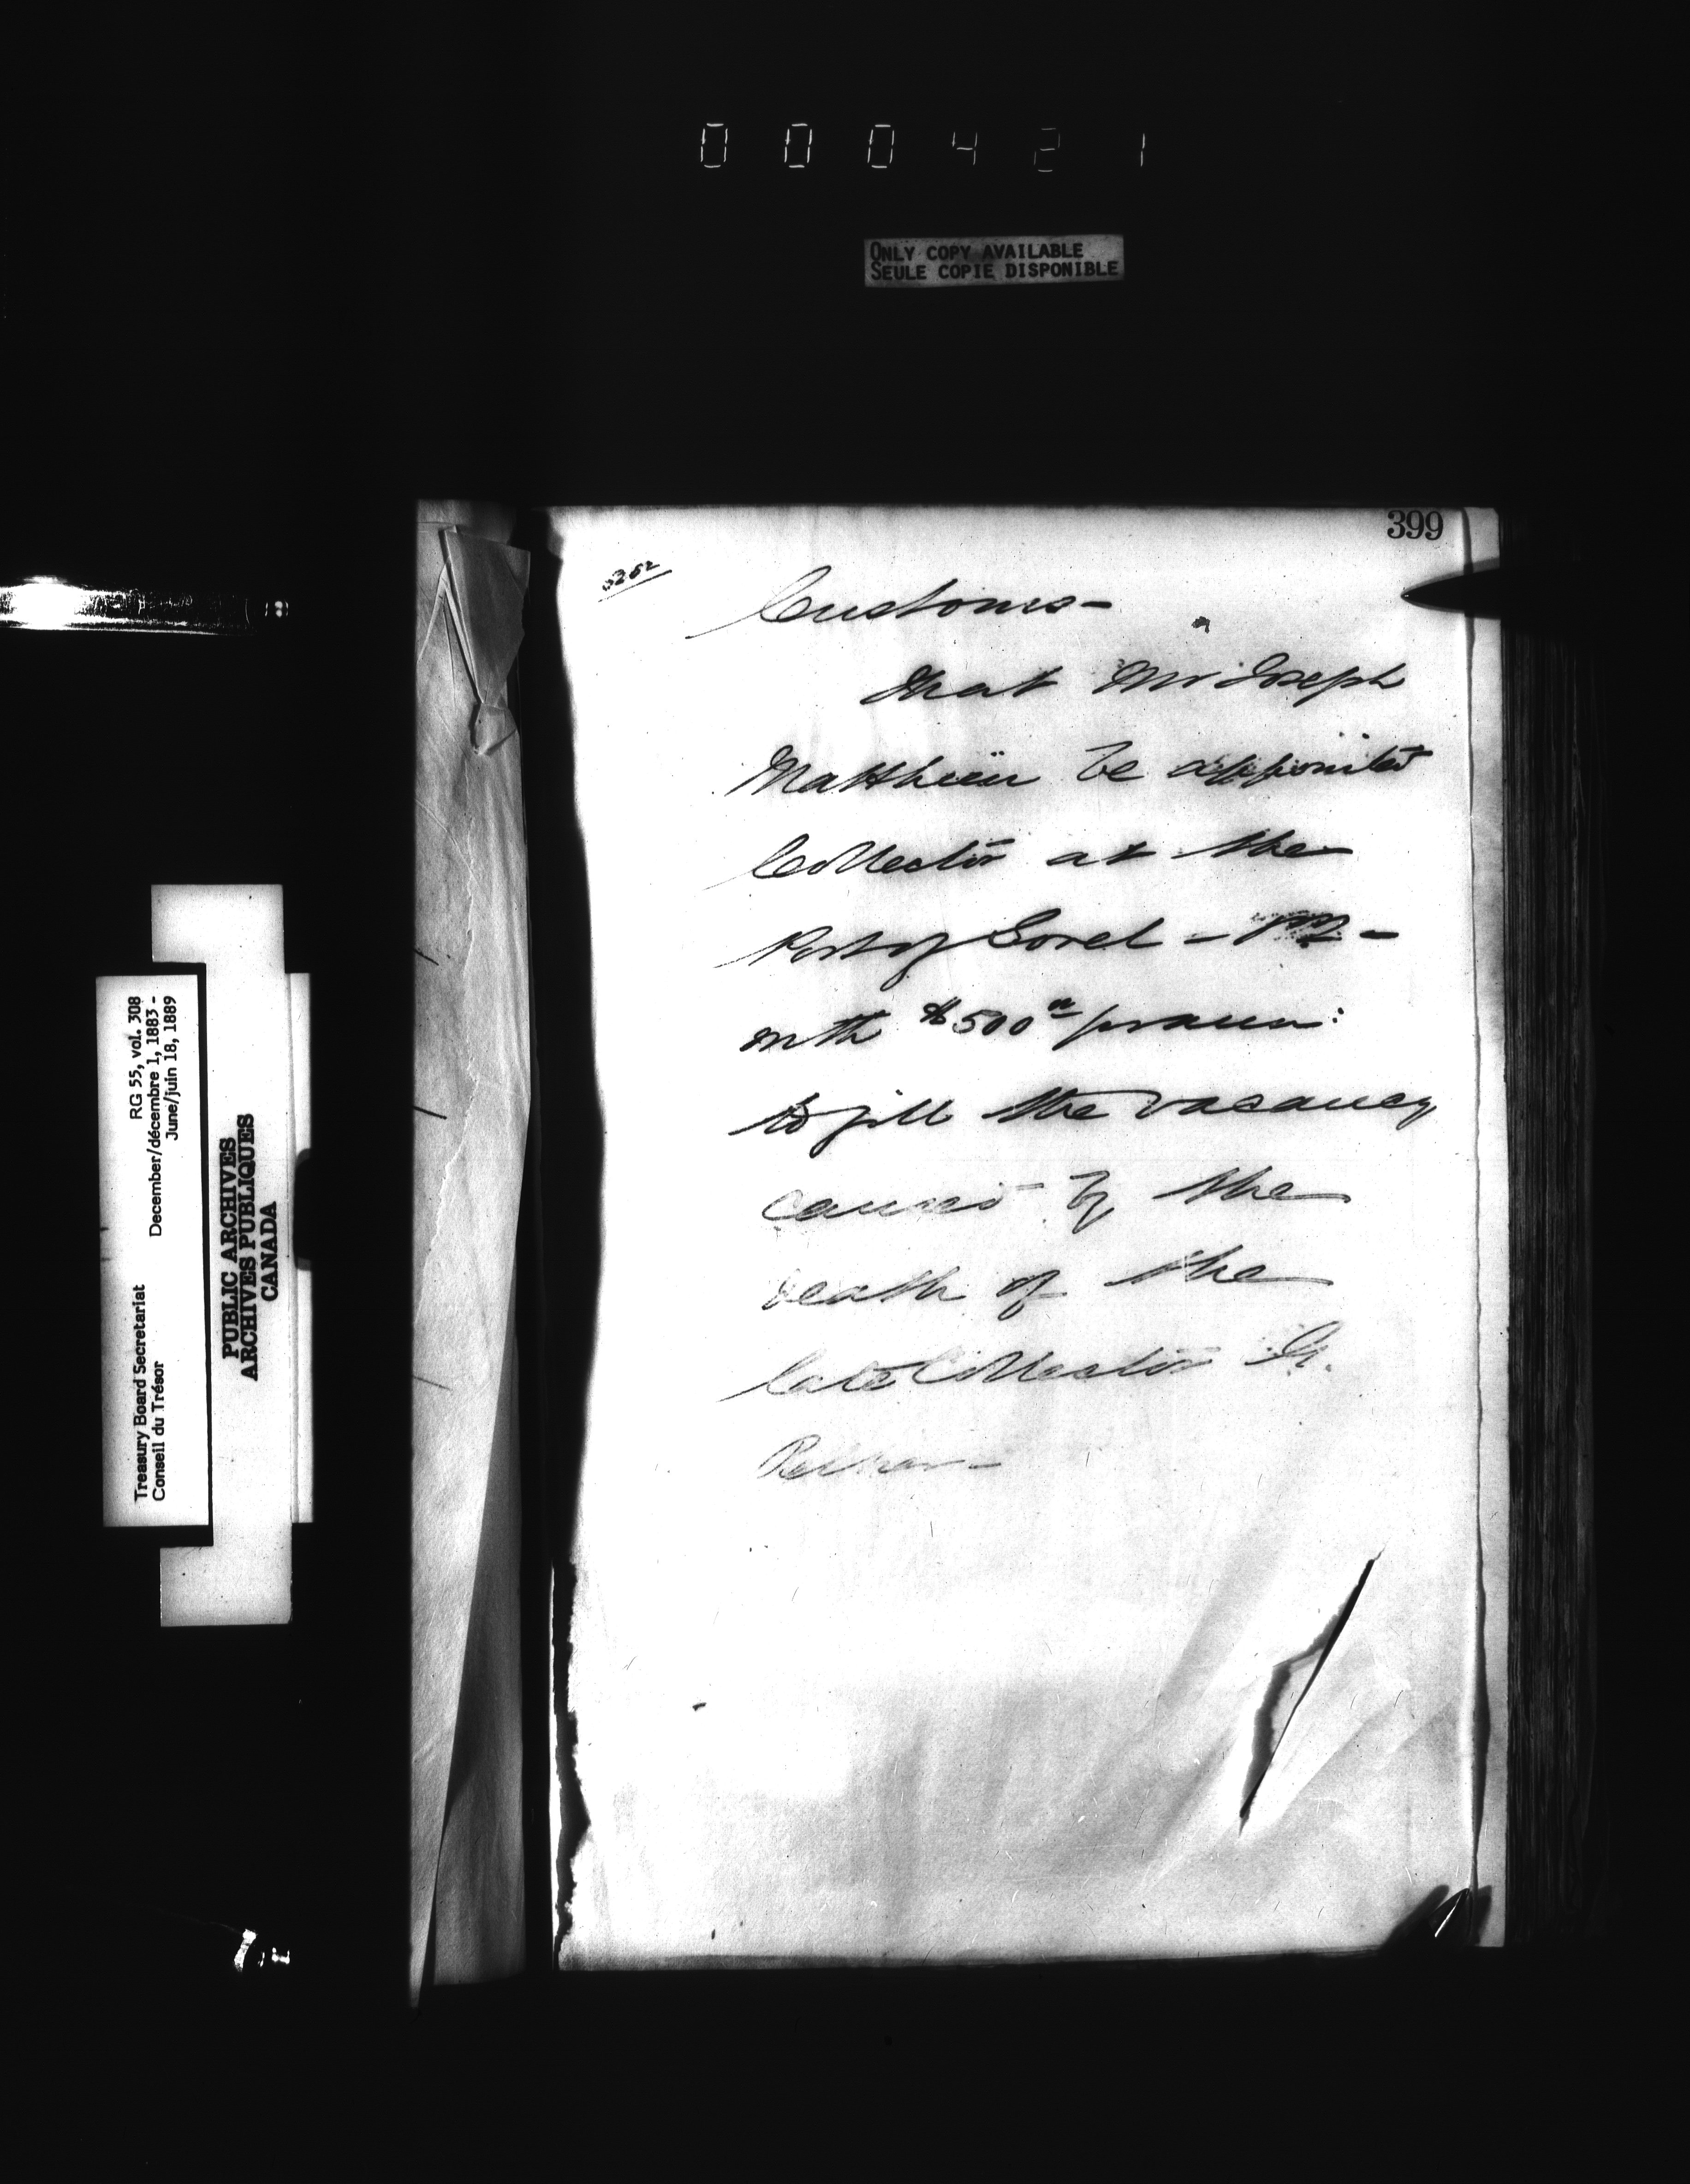 000421
ONLY COPY AVAILABLE
SEULE COPIE DISPONIBLE
399
Customs-
That Mr Joseph
Matthieu be appointed
Collector at the
Port of Sorel - PQ -
with $500 00 pr annu:
to fill the vacancy
caused by the
death of the
late Collector
Treasury Board Secretariat
Conseil du Trésor
RG 55, vol. 308
December/décembre 1, 1883 -
June/juin 18, 1889
PUBLIC ARCHIVES
ARCHIVES PUBLIQUES
CANADA